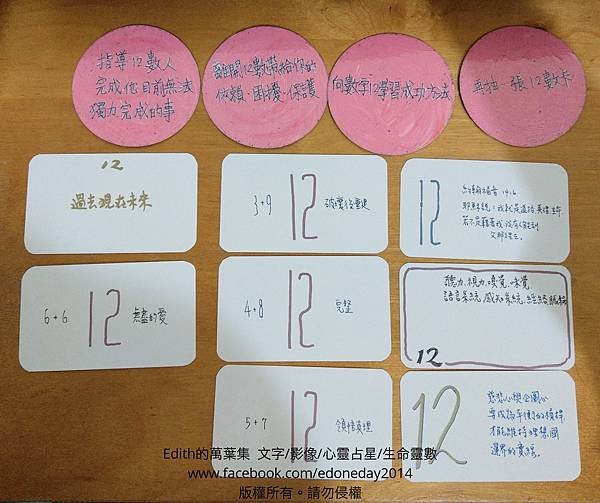 指導12數人
完成他目前無法
獨力完成的事
離開12數帶給你的
依賴、困擾、保護
向數字12學習成功方法
再抽一張12數卡
12
過去現在未來
3+9 12 破壞後重建
12
約翰福音 14:6
6+6 12 無盡的愛
4+8 12 完整
聽力、視力、嗅覺、味覺、
12
5+7 12 領悟真理
12
Edith的萬葉集 文字/影像/心靈占星/生命靈數
www.facebook.com/edoneday2014
版權所有。請勿侵權